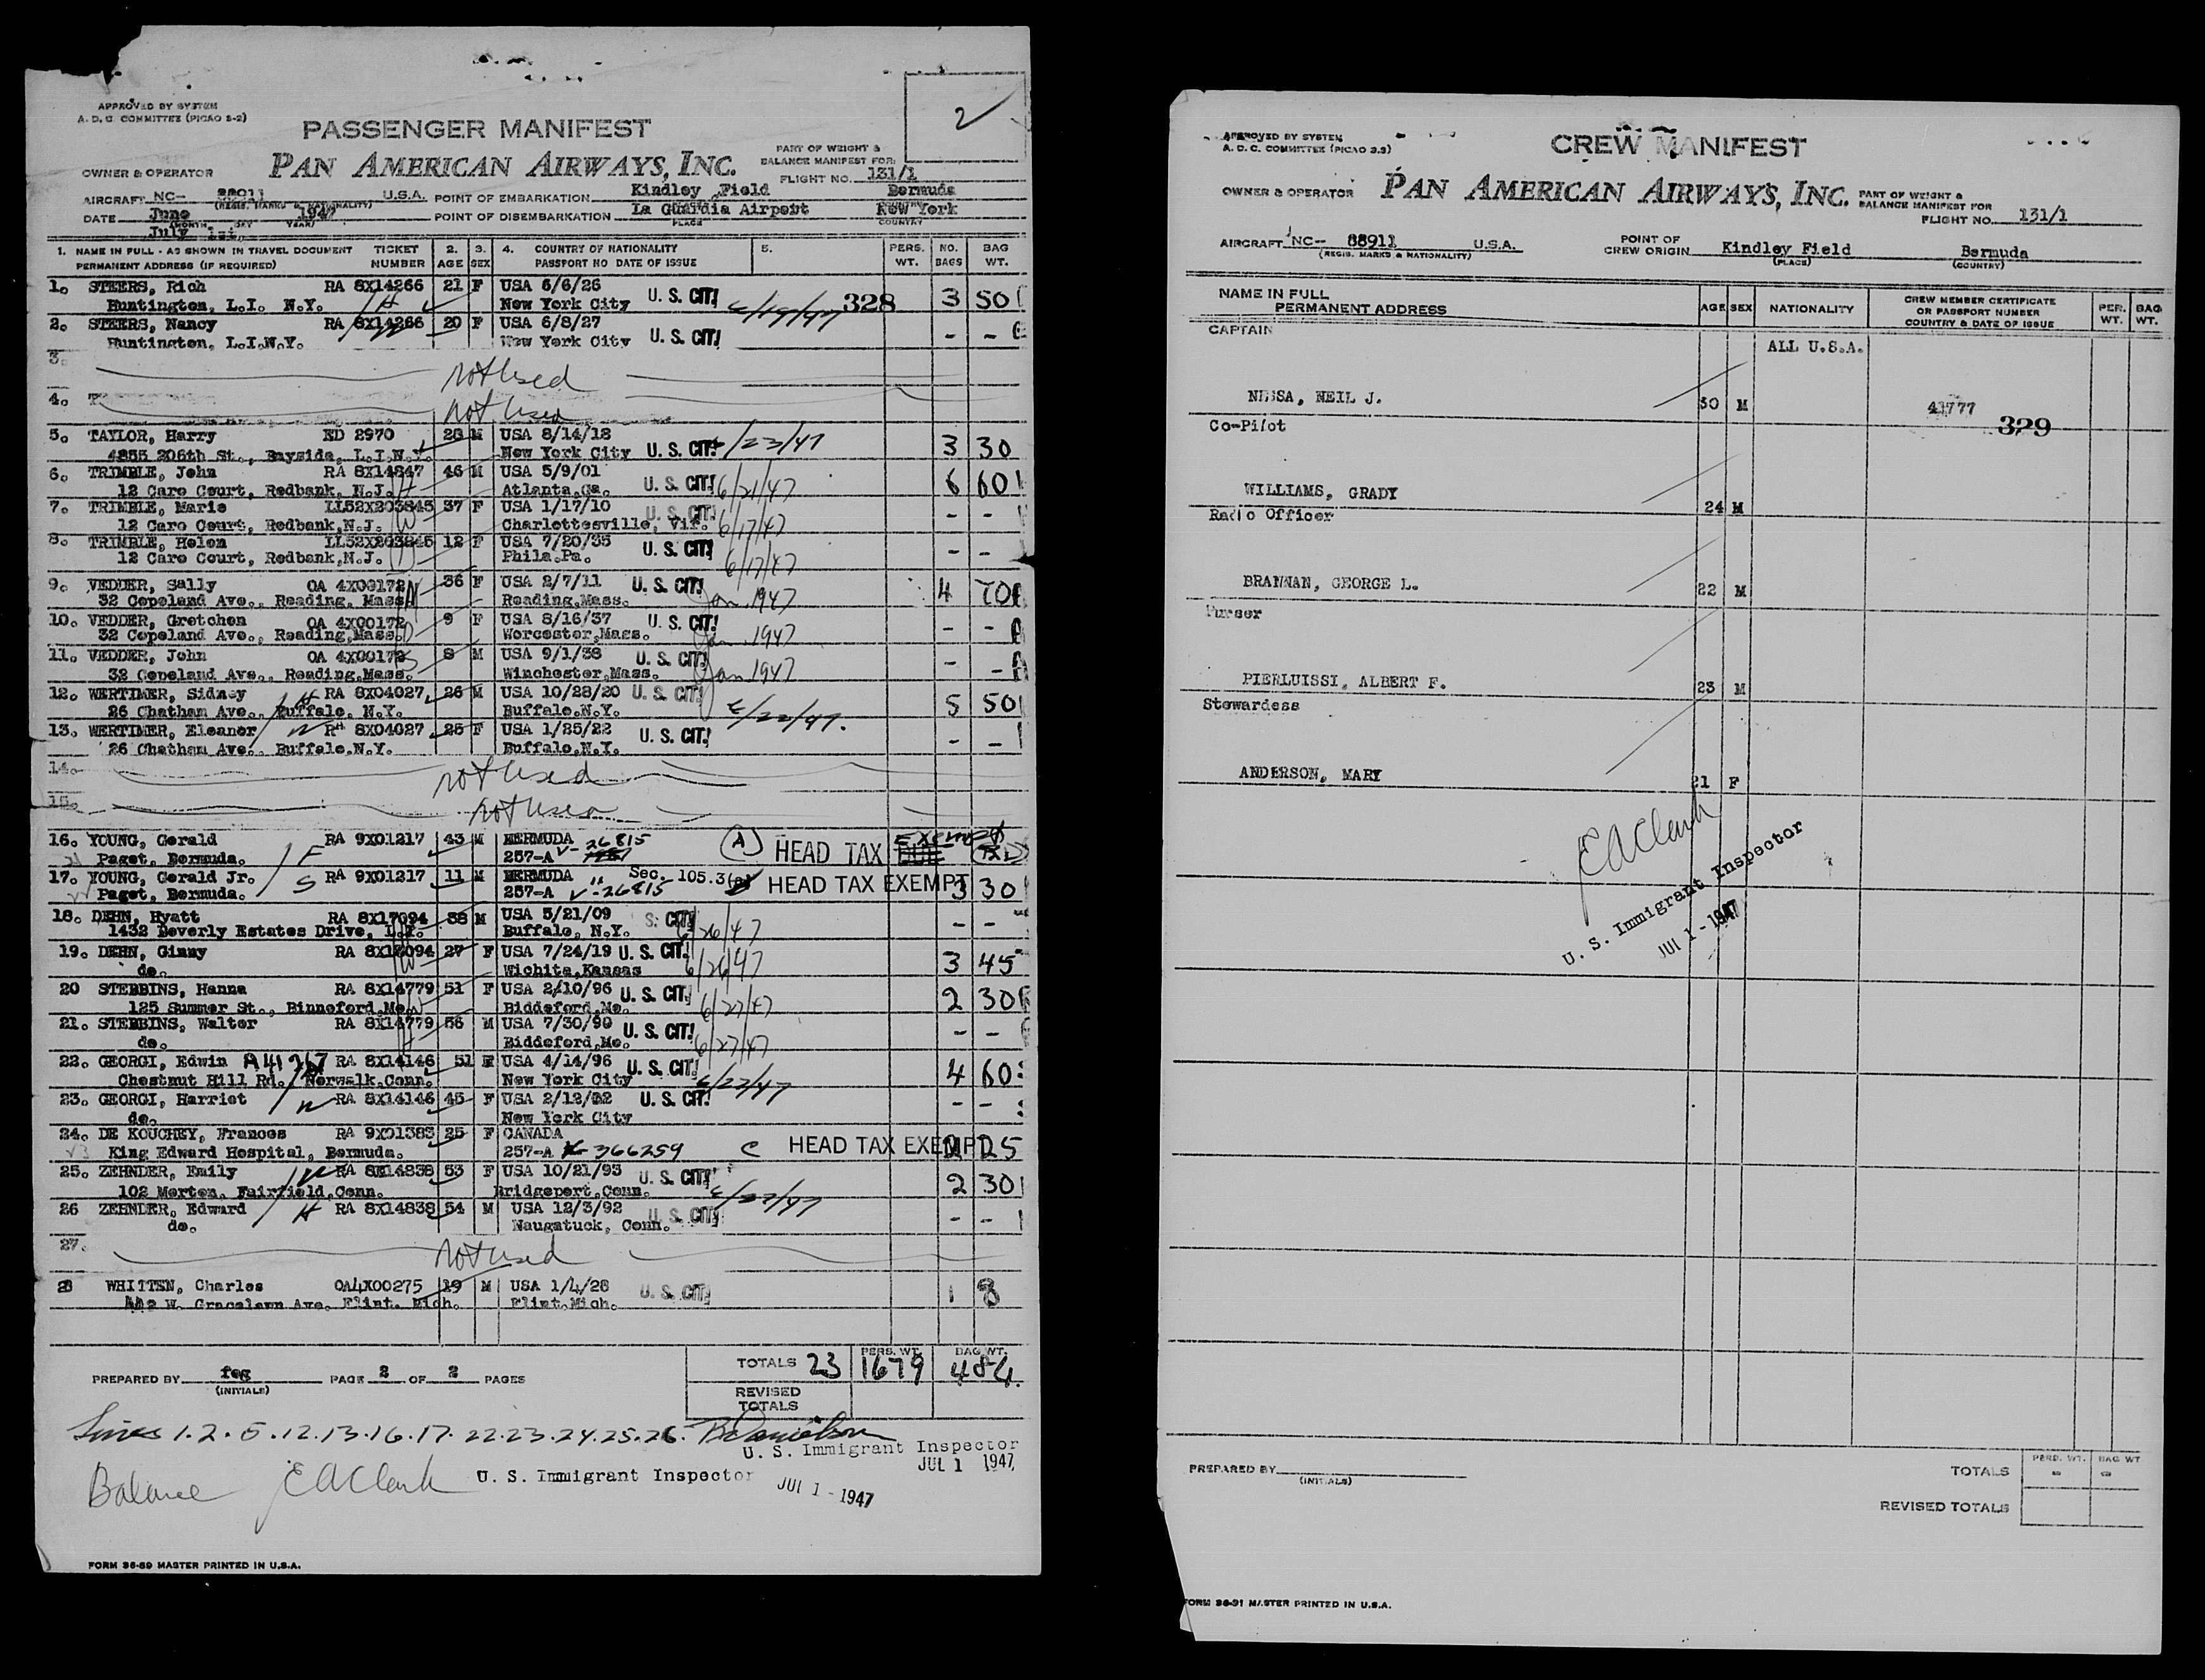 APPROVED BY SYSTEM
A. D. C. COMMITTEE (PICAO 2-2)
2
PASSENGER MANIFEST
PAN AMERICAN AIRWAYS, INC.
PART OF WEIGHT &
BALANCE MANIFEST FOR:
OWNER & OPERATOR
FLIGHT NO. 131/1
AIRCRAFT NC- 88911 U.S.A. POINT OF EMBARKATION Kindley Field Bermuda
(REGIS. MARKS & NATIONALITY)
DATE June 1947 POINT OF DISEMBARKATION La Guardia Airport New York
(MONTH DAY YEAR) PLACE COUNTRY
July 1st,
1. NAME IN FULL - AS SHOWN IN TRAVEL DOCUMENT TICKET 2. 3. 4. COUNTRY OF NATIONALITY 5. PERS. NO. BAG
PERMANENT ADDRESS (IF REQUIRED) NUMBER AGE SEX PASSPORT NO DATE OF ISSUE WT. BAGS WT.
1. STEERS, Rich RA 8X14266 21 F USA 6/6/26 U. S. CIT!
Huntington, L.I. N.Y. H New York City 6/19/47 328 3 50
2. STEERS, Nancy RA 8X14266 20 F USA 6/8/27
Huntington, L.I.N.Y. W New York City U. S. CIT! - -
3. not used
4. not used
5. TAYLOR, Harry ED 2970 28 M USA 8/14/18
4855 206th St., Bayside, L.I.N.Y. New York City U. S. CIT! /23/47 3 30
6. TRIMBLE, John RA 8X14847 46 M USA 5/9/01
12 Caro Court, Redbank, N.J. H Atlanta, Ga. U. S. CIT! 6/21/47 6 60
7. TRIMBLE, Marie LL52X203845 37 F USA 1/17/10
12 Caro Court, Redbank,N.J. W Charlottesville, Vir. U. S. CIT! 6/17/47 - -
8. TRIMBLE, Helen LL52X203845 12 F USA 7/20/35
12 Caro Court, Redbank,N.J. D Phila.Pa. U. S. CIT! 6/17/47 - -
9. VEDDER, Sally OA 4X00172 36 F USA 2/7/11 U. S. CIT!
32 Copeland Ave., Reading, Mass. Reading,Mass. Jan 1947 4 70
10. VEDDER, Gretchen OA 4X00172 9 F USA 8/16/37 U. S. CIT!
32 Copeland Ave., Reading,Mass. D Worcester,Mass. Jan 1947 - -
11. VEDDER, John OA 4X00172 8 M USA 9/1/38 U. S. CIT!
32 Copeland Ave., Reading,Mass. S Winchester,Mass. Jan 1947 - -
12. WERTIMER, Sidney H RA 8X04027 26 M USA 10/28/20 U. S. CIT!
26 Chatham Ave., Buffalo, N.Y. Buffalo,N.Y. 6/22/47. 5 50
13. WERTIMER, Eleanor W RA 8X04027 25 F USA 1/25/22 U. S. CIT!
26 Chatham Ave., Buffalo,N.Y. Buffalo,N.Y. - -
14. not used
15. not used
16. YOUNG, Gerald RA 9X01217 43 M BERMUDA 26815 (A) HEAD TAX DUE Exempt
Paget, Bermuda. F 257-A V-
17. YOUNG, Gerald Jr. S RA 9X01217 11 M BERMUDA " Sec. 105.3 HEAD TAX EXEMPT 3 30
Paget, Bermuda. 257-A V-26815
18. DEHN, Hyatt RA 8X17094 38 M USA 5/21/09 S. CIT!
1432 Beverly Estates Drive, Buffalo, N.Y. 6/26/47 - -
19. DEHN, Ginny RA 8X17094 27 F USA 7/24/19 U. S. CIT!
do. W Wichita,Kansas 6/26/47 3 45
20 STEBBINS, Hanna RA 8X14779 51 F USA 2/10/96 U. S. CIT!
125 Summer St., Binneford,Me. W Biddeford,Me. 6/27/47 2 30
21. STEBBINS, Walter RA 8X14779 56 M USA 7/30/90 U. S. CIT!
do. H Biddeford,Me. 6/27/47 - -
22. GEORGI, Edwin A41267 RA 8X14146 51 M USA 4/14/96 U. S. CIT!
Chestnut Hill Rd., Norwalk,Conn. New York City 6/23/47 4 60
23. GEORGI, Harriet W RA 8X14146 45 F USA 2/12/02 U. S. CIT!
do. New York City - -
24. DE KOUCHEY, Frances RA 9X01383 25 F CANADA
King Edward Hospital, Bermuda. 257-A 366259 C HEAD TAX EXEMPT 2 25
25. ZEHNDER, Emily W RA 8X14838 53 F USA 10/21/93 U. S. CIT!
102 Morton, Fairfield,Conn. Bridgeport,Conn. 6/27/47 2 30
26 ZEHNDER, Edward H RA 8X14838 54 M USA 12/3/92
do. Naugatuck, Conn. U. S. CIT! - -
27. not used
28 WHITTEN, Charles OA4X00275 19 M USA 1/4/28 U. S. CIT!
442 W. Gracelawn Ave. Flint, Mich. Flint,Mich. 1 8
TOTALS 23 PERS. WT. 1679 BAG WT. 484.
PREPARED BY feg PAGE 2 OF 2 PAGES
(INITIALS)
REVISED
TOTALS
Lines 1.2.5.12.13.16.17.22.23.24.25.26. B Danielson
U. S. Immigrant Inspector
JUL 1 1947
Balance E A Clark U. S. Immigrant Inspector
JUL 1 - 1947
FORM 36-89 MASTER PRINTED IN U.S.A.
APPROVED BY SYSTEM
A. D. C. COMMITTEE (PICAO 2.3)
CREW MANIFEST
OWNER & OPERATOR PAN AMERICAN AIRWAYS, INC. PART OF WEIGHT &
BALANCE MANIFEST FOR
FLIGHT NO. 131/1
AIRCRAFT NC- 88911 U.S.A. POINT OF CREW ORIGIN Kindley Field Bermuda
(REGIS. MARKS & NATIONALITY) (PLACE) (COUNTRY)
NAME IN FULL
PERMANENT ADDRESS AGE SEX NATIONALITY CREW MEMBER CERTIFICATE OR PASSPORT NUMBER COUNTRY & DATE OF ISSUE PER. WT. BAG WT.
CAPTAIN
ALL U.S.A.
NESSA, NEIL J. 30 M 41777
Co-Pilot 329
WILLIAMS, GRADY 24 M
Radio Officer
BRANNAN, GEORGE L. 22 M
Purser
PIERLUISSI, ALBERT F. 23 M
Stewardess
ANDERSON, MARY 21 F
E A Clark
U. S. Immigrant Inspector
JUL 1 - 1947
PREPARED BY
(INITIALS)
PERS. WT. BAG WT
TOTALS - -
REVISED TOTALS
FORM 36-91 MASTER PRINTED IN U.S.A.